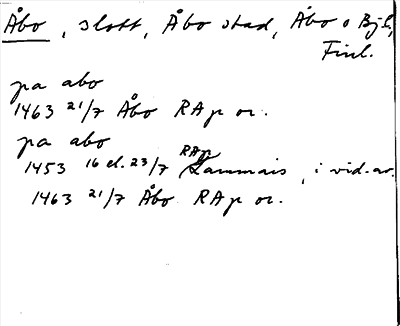 Åbo, slott, Åbo stad, Åbo o Bjb,
Finl.
pa abo
1463 21/7 Åbo RAp or.
pa abo
1453 16 el. 23/7 RAp Lammais, i vid. av.
1463 21/7 Åbo RAp or.